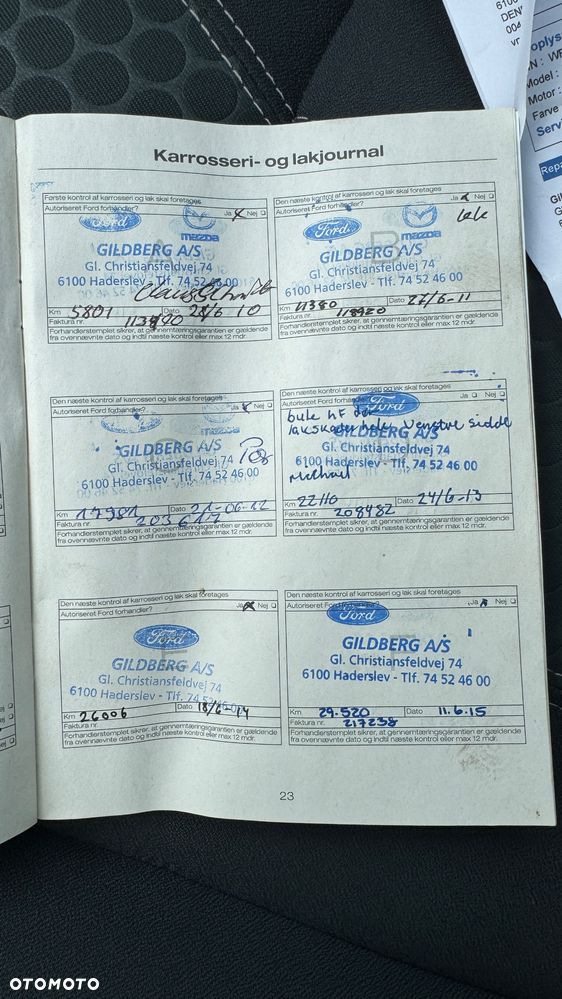 6100
DEN
004
vr
oplys
Model :
Motor :
Farve
Servi
Repa
Karrosseri- og lakjournal
Første kontrol af karrosseri og lak skal foretages
Autoriseret Ford forhandler? Ja Nej
Ford
mazda
GILDBERG A/S
Gl. Christiansfeldvej 74
6100 Haderslev - Tlf. 74 52 46 00
Km 5801 Dato 28/6 10
Faktura nr.
Forhandlerstemplet sikrer, at gennemtæringsgarantien er gældende
fra ovennævnte dato og indtil næste kontrol eller max 12 mdr.
Den næste kontrol af karrosseri og lak skal foretages
Autoriseret Ford forhandler? Ja Nej
Ford
mazda
GILDBERG A/S
Gl. Christiansfeldvej 74
6100 Haderslev - Tlf. 74 52 46 00
Km 11380 Dato
Faktura nr. 118920
Forhandlerstemplet sikrer, at gennemtæringsgarantien er gældende
fra ovennævnte dato og indtil næste kontrol eller max 12 mdr.
Den næste kontrol af karrosseri og lak skal foretages
Autoriseret Ford forhandler? Ja Nej
GILDBERG A/S
Gl. Christiansfeldvej 74
6100 Haderslev - Tlf. 74 52 46 00
Km 17981 Dato 21-06-12
Faktura nr. 203617
Forhandlerstemplet sikrer, at gennemtæringsgarantien er gældende
fra ovennævnte dato og indtil næste kontrol eller max 12 mdr.
Den næste kontrol af karrosseri og lak skal foretages
Autoriseret Ford forhandler? Ja Nej
Ford
bule hF dør
lakskader hele venstre sidde
GILDBERG A/S
Gl. Christiansfeldvej 74
6100 Haderslev - Tlf. 74 52 46 00
Michael
Km 22110 Dato 24/6-13
Faktura nr. 208482
Forhandlerstemplet sikrer, at gennemtæringsgarantien er gældende
fra ovennævnte dato og indtil næste kontrol eller max 12 mdr.
Den næste kontrol af karrosseri og lak skal foretages
Autoriseret Ford forhandler? Ja Nej
Ford
GILDBERG A/S
Gl. Christiansfeldvej 74
6100 Haderslev - Tlf. 74 52 46 00
Km 26006 Dato 18/6-14
Faktura nr.
Forhandlerstemplet sikrer, at gennemtæringsgarantien er gældende
fra ovennævnte dato og indtil næste kontrol eller max 12 mdr.
Den næste kontrol af karrosseri og lak skal foretages
Autoriseret Ford forhandler? Ja Nej
Ford
GILDBERG A/S
Gl. Christiansfeldvej 74
6100 Haderslev - Tlf. 74 52 46 00
Km 29.520 Dato 11.6.15
Faktura nr. 217238
Forhandlerstemplet sikrer, at gennemtæringsgarantien er gældende
fra ovennævnte dato og indtil næste kontrol eller max 12 mdr.
23
OTOMOTO